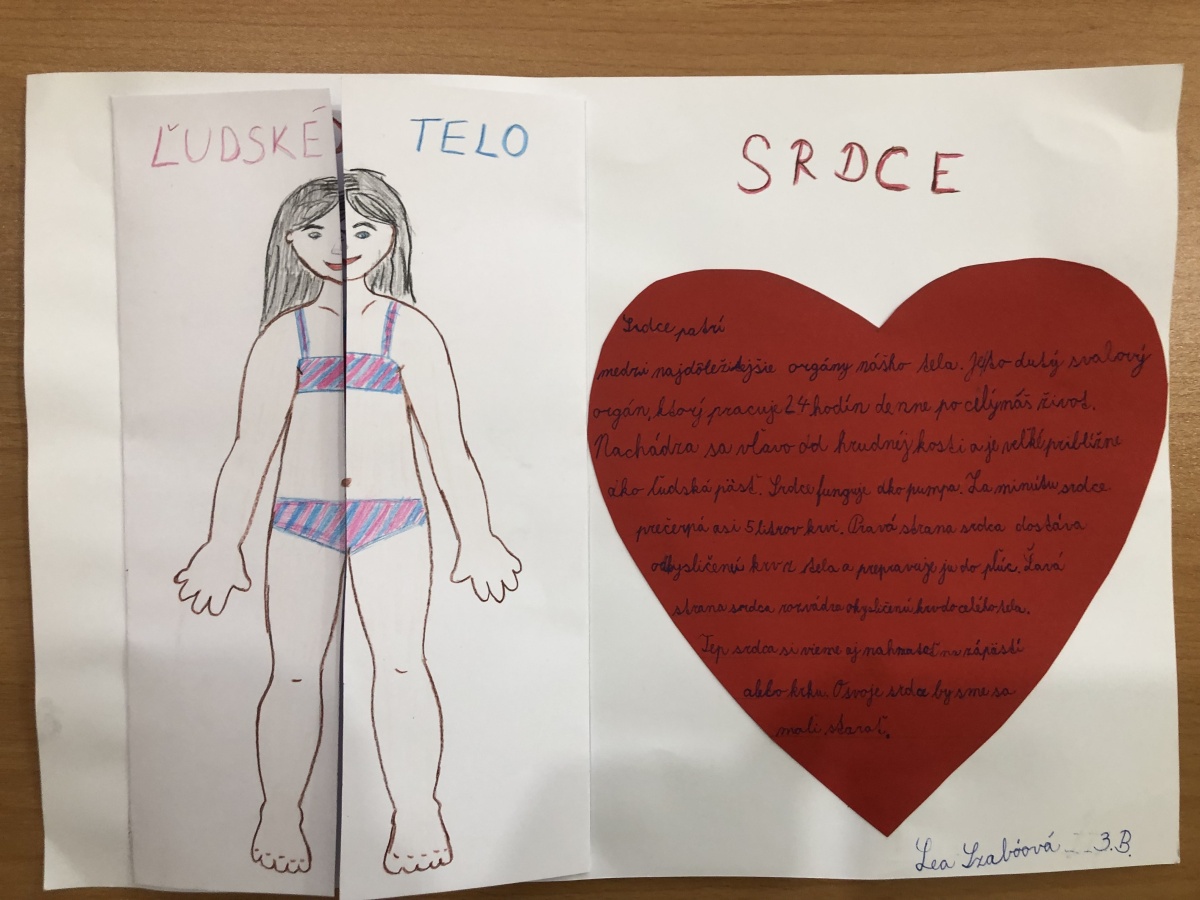 ĽUDSKÉ TELO
SRDCE
Srdce patrí
medzi najdôležitejšie orgány nášho tela. Je to dutý svalový
orgán, ktorý pracuje 24 hodín denne po celý náš život.
Nachádza sa vľavo od hrudnej kosti a je veľké približne
ako ľudská päsť. Srdce funguje ako pumpa. Za minútu srdce
prečerpá asi 5 litrov krvi. Pravá strana srdca dostáva
odkysličenú krv z tela a prepravuje ju do pľúc. Ľavá
strana srdca rozvádza okysličenú krv do celého tela.
Tep srdca si vieme aj nahmatať na zápästí
alebo krku. O svoje srdce by sme sa
mali starať.
Lea Szabóová 3.B.